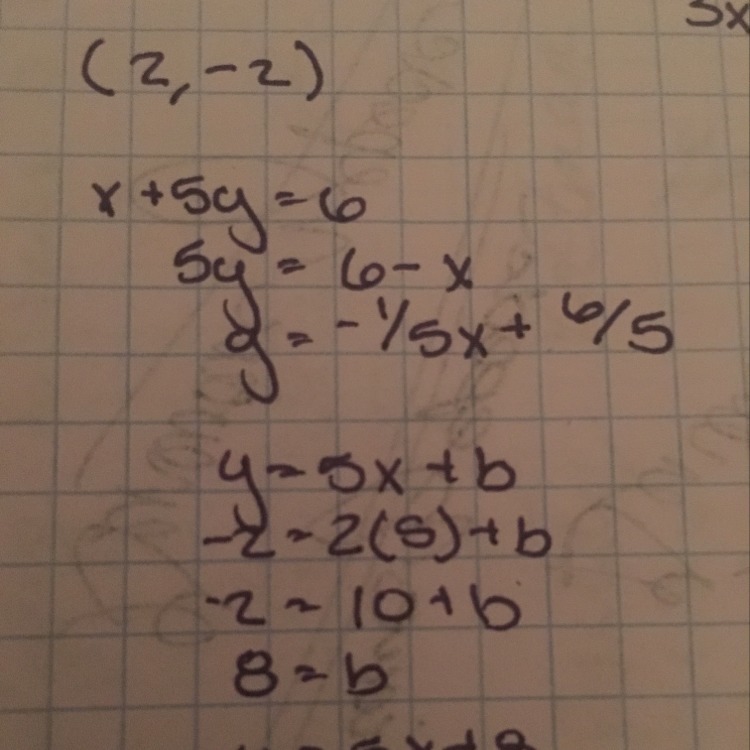 5x
(2,-2)
x+5y=6
5y = 6-x
y = -1/5x + 6/5
y=5x+b
-2=2(5)+b
-2=10+b
8=b
y=5x+8